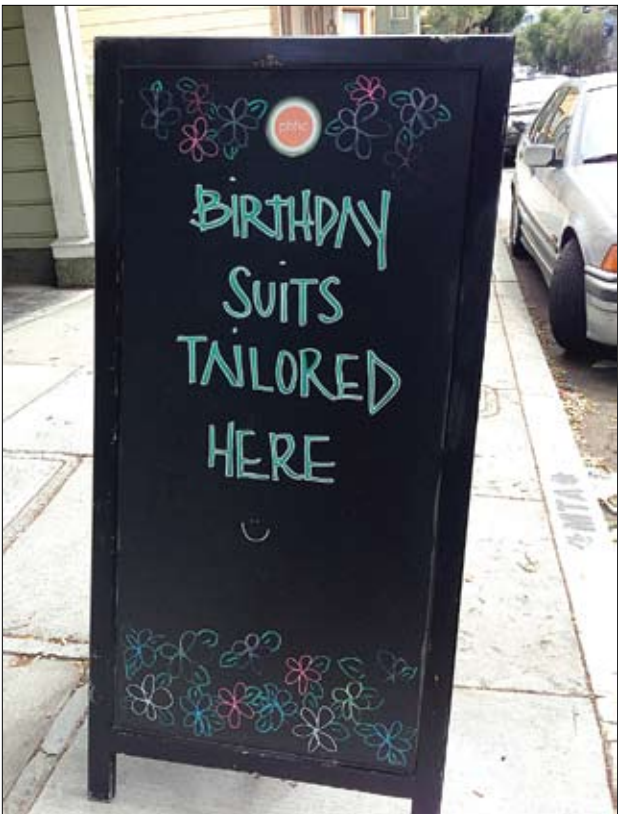 BIRTHDAY
SUITS
TAILORED
HERE